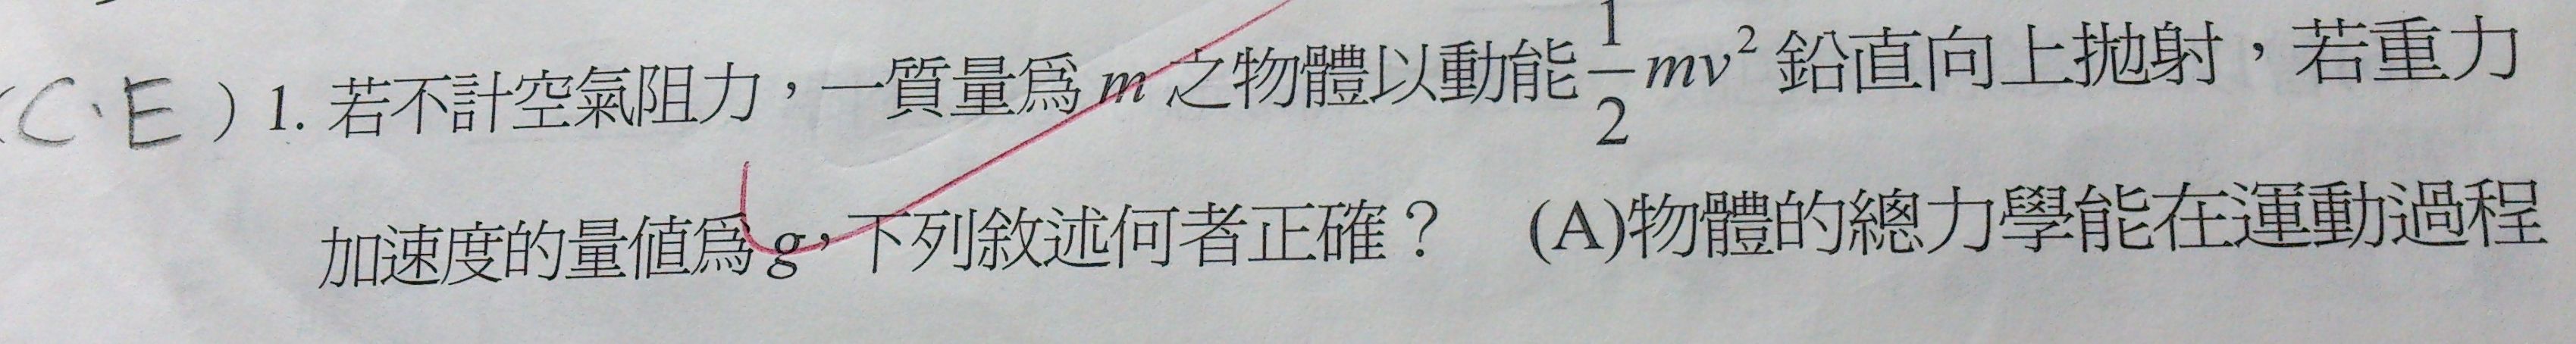 (C、E) 1. 若不計空氣阻力，一質量為 m 之物體以動能 \frac{1}{2}mv² 鉛直向上拋射，若重力
加速度的量值為 g，下列敘述何者正確？ (A)物體的總力學能在運動過程